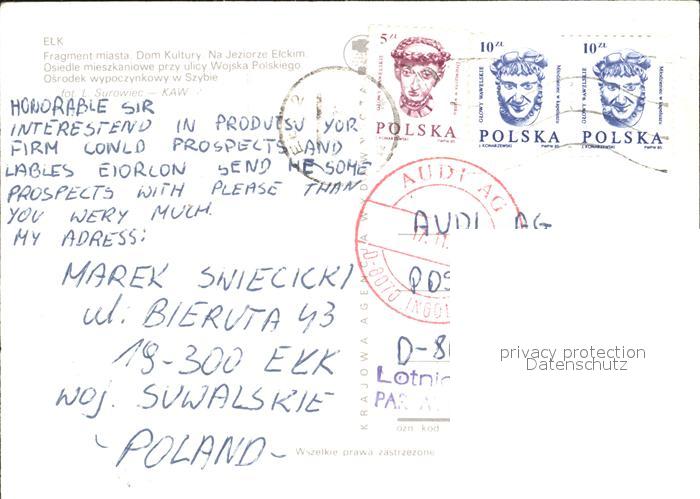 EŁK
Fragment miasta. Dom Kultury. Na Jeziorze Ełckim.
Osiedle mieszkaniowe przy ulicy Wojska Polskiego.
Ośrodek wypoczynkowy w Szybie
fot. L. Surowiec — KAW
HONORABLE SIR
INTERESTEND IN PRODUTSU YOR
FIRM COWLD PROSPECTS AND
LABLES EIORCON SEND ME SOME
PROSPECTS WITH PLEASE THAN
YOU WERY MUCH.
MY ADRESS:
MAREK SWIECICKI
ul. BIERUTA 43
19-300 EŁK
WOJ. SUWALSKIE
- POLAND -
Wszelkie prawa zastrzeżone
KRAJOWA AGENCJA WYDAWNICZA
5 ZŁ
POLSKA
10 ZŁ
GŁOWY WAWELSKIE
POLSKA
J. KONARZEWSKI PWPW 85
10 ZŁ
GŁOWY WAWELSKIE
POLSKA
J. KONARZEWSKI PWPW 85
AUDI AG
D-8070 INGOL
AUDI AG
POS
D-8
Lotni
PAR AV
ozn. kod
privacy protection
Datenschutz